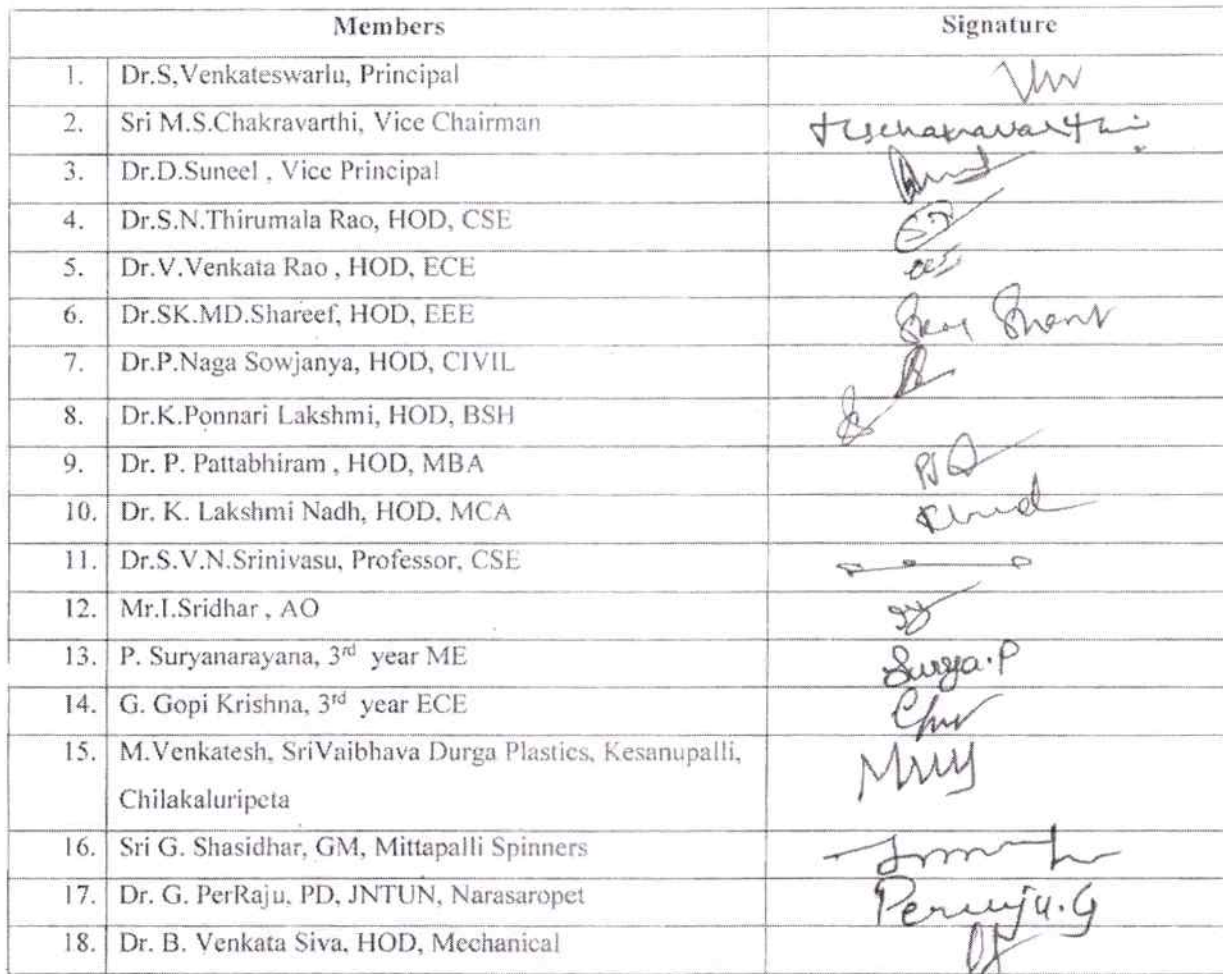 Members Signature
1. Dr.S,Venkateswarlu, Principal
2. Sri M.S.Chakravarthi, Vice Chairman
3. Dr.D.Suneel , Vice Principal
4. Dr.S.N.Thirumala Rao, HOD, CSE
5. Dr.V.Venkata Rao , HOD, ECE
6. Dr.SK.MD.Shareef, HOD, EEE
7. Dr.P.Naga Sowjanya, HOD, CIVIL
8. Dr.K.Ponnari Lakshmi, HOD, BSH
9. Dr. P. Pattabhiram , HOD, MBA
10. Dr. K. Lakshmi Nadh, HOD, MCA
11. Dr.S.V.N.Srinivasu, Professor, CSE
12. Mr.I.Sridhar , AO
13. P. Suryanarayana, 3rd year ME Surya.P
14. G. Gopi Krishna, 3rd year ECE
15. M.Venkatesh, SriVaibhava Durga Plastics, Kesanupalli,
Chilakaluripeta
16. Sri G. Shasidhar, GM, Mittapalli Spinners
17. Dr. G. PerRaju, PD, JNTUN, Narasaropet
18. Dr. B. Venkata Siva, HOD, Mechanical